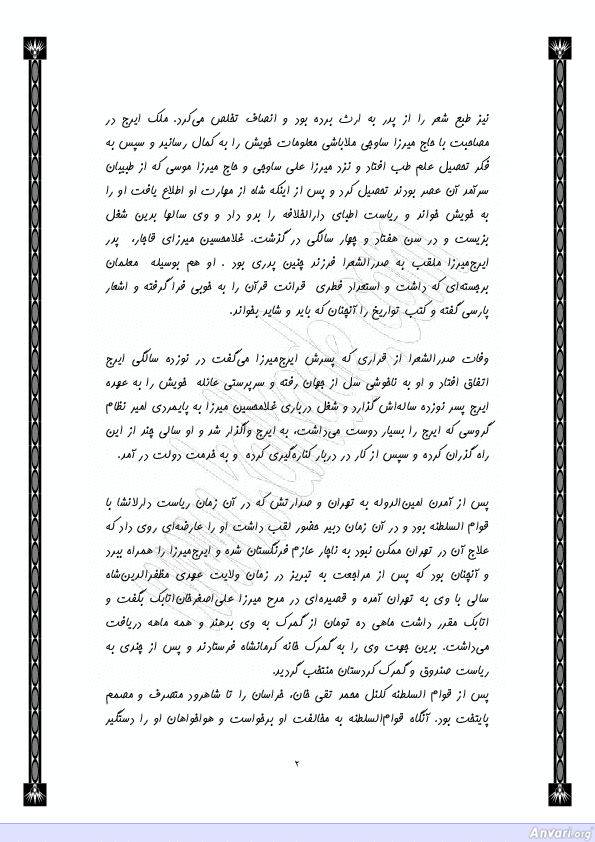 نیز طبع شعر را از پدر به ارث برده بود و انصاف تخلص می‌کرد. ملک ایرج در
مصاحبت با حاج میرزا ساوجی ملاباشی معلومات خویش را به کمال رسانید و سپس به
فکر تحصیل علم طب افتاد و نزد میرزا علی ساوجی و حاج میرزا موسی که از طبیبان
سرآمد آن عصر بودند تحصیل کرد و پس از اینکه شاه از مهارت او اطلاع یافت او را
به خویش خواند و ریاست اطبای دارالخلافه را بدو داد و وی سالها بدین شغل
بزیست و در سن هفتاد و چهار سالگی در گذشت. غلامحسین میرزای قاجار، پدر
ایرج‌میرزا ملقب به صدرالشعرا فرزند چنین پدری بود . او هم بوسیله معلمان
برجسته‌ای که داشت و استعداد فطری قرائت قرآن را به خوبی فرا گرفته و اشعار
پارسی گفته و کتب تواریخ را آنچنان که باید و شاید بخواند.
وفات صدرالشعرا از قراری که پسرش ایرج‌میرزا می‌گفت در نوزده سالگی ایرج
اتفاق افتاد و او به ناخوشی سل از جهان رفته و سرپرستی عائله خویش را به عهده
ایرج پسر نوزده ساله‌اش گذارد و شغل درباری غلامحسین میرزا به پایمردی امیر نظام
گروسی که ایرج را بسیار دوست می‌داشت، به ایرج واگذار شد و او سالی چند از این
راه گذران کرده و سپس از کار در دربار کناره‌گیری کرده و به خدمت دولت در آمد.
پس از آمدن امین‌الدوله به تهران و صدارتش که در آن زمان ریاست دارلانشا با
قوام السلطنه بود و در آن زمان دبیر حضور لقب داشت او را عارضه‌ای روی داد که
علاج آن در تهران ممکن نبود به ناچار عازم فرنگستان شده و ایرج‌میرزا را همراه ببرد
و آنچنان بود که پس از مراجعت به تبریز در زمان ولایت عهدی مظفرالدین‌شاه
سالی با وی به تهران آمده و قصیده‌ای در مدح میرزا علی‌اصغرخان‌اتابک بگفت و
اتابک مقرر داشت ماهی ده تومان از گمرک به وی بدهند و همه ماهه دریافت
می‌داشت. بدین جهت وی را به گمرک خانه کرمانشاه فرستادند و پس از چندی به
ریاست صندوق و گمرک کردستان منتخب گردید.
پس از قوام السلطنه کلنل محمد تقی خان، خراسان را تا شاهرود متصرف و مصمم
پایتخت بود. آنگاه قوام‌السلطنه به مخالفت او برخواست و هواخواهان او را دستگیر
۲
Anvari.org